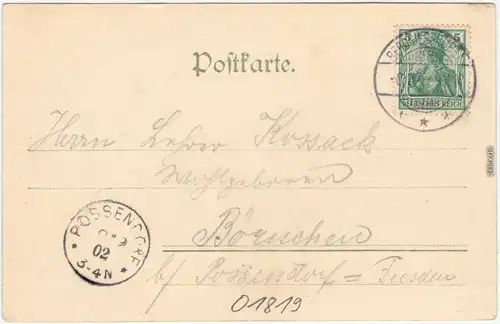 Postkarte.
5 5
DEUTSCHES REICH
Herrn Lehrer Kossack
Wohlgeboren
Börnchen
b/ Possendorf = Dresden
POSSENDORF
02
3-4N
01819